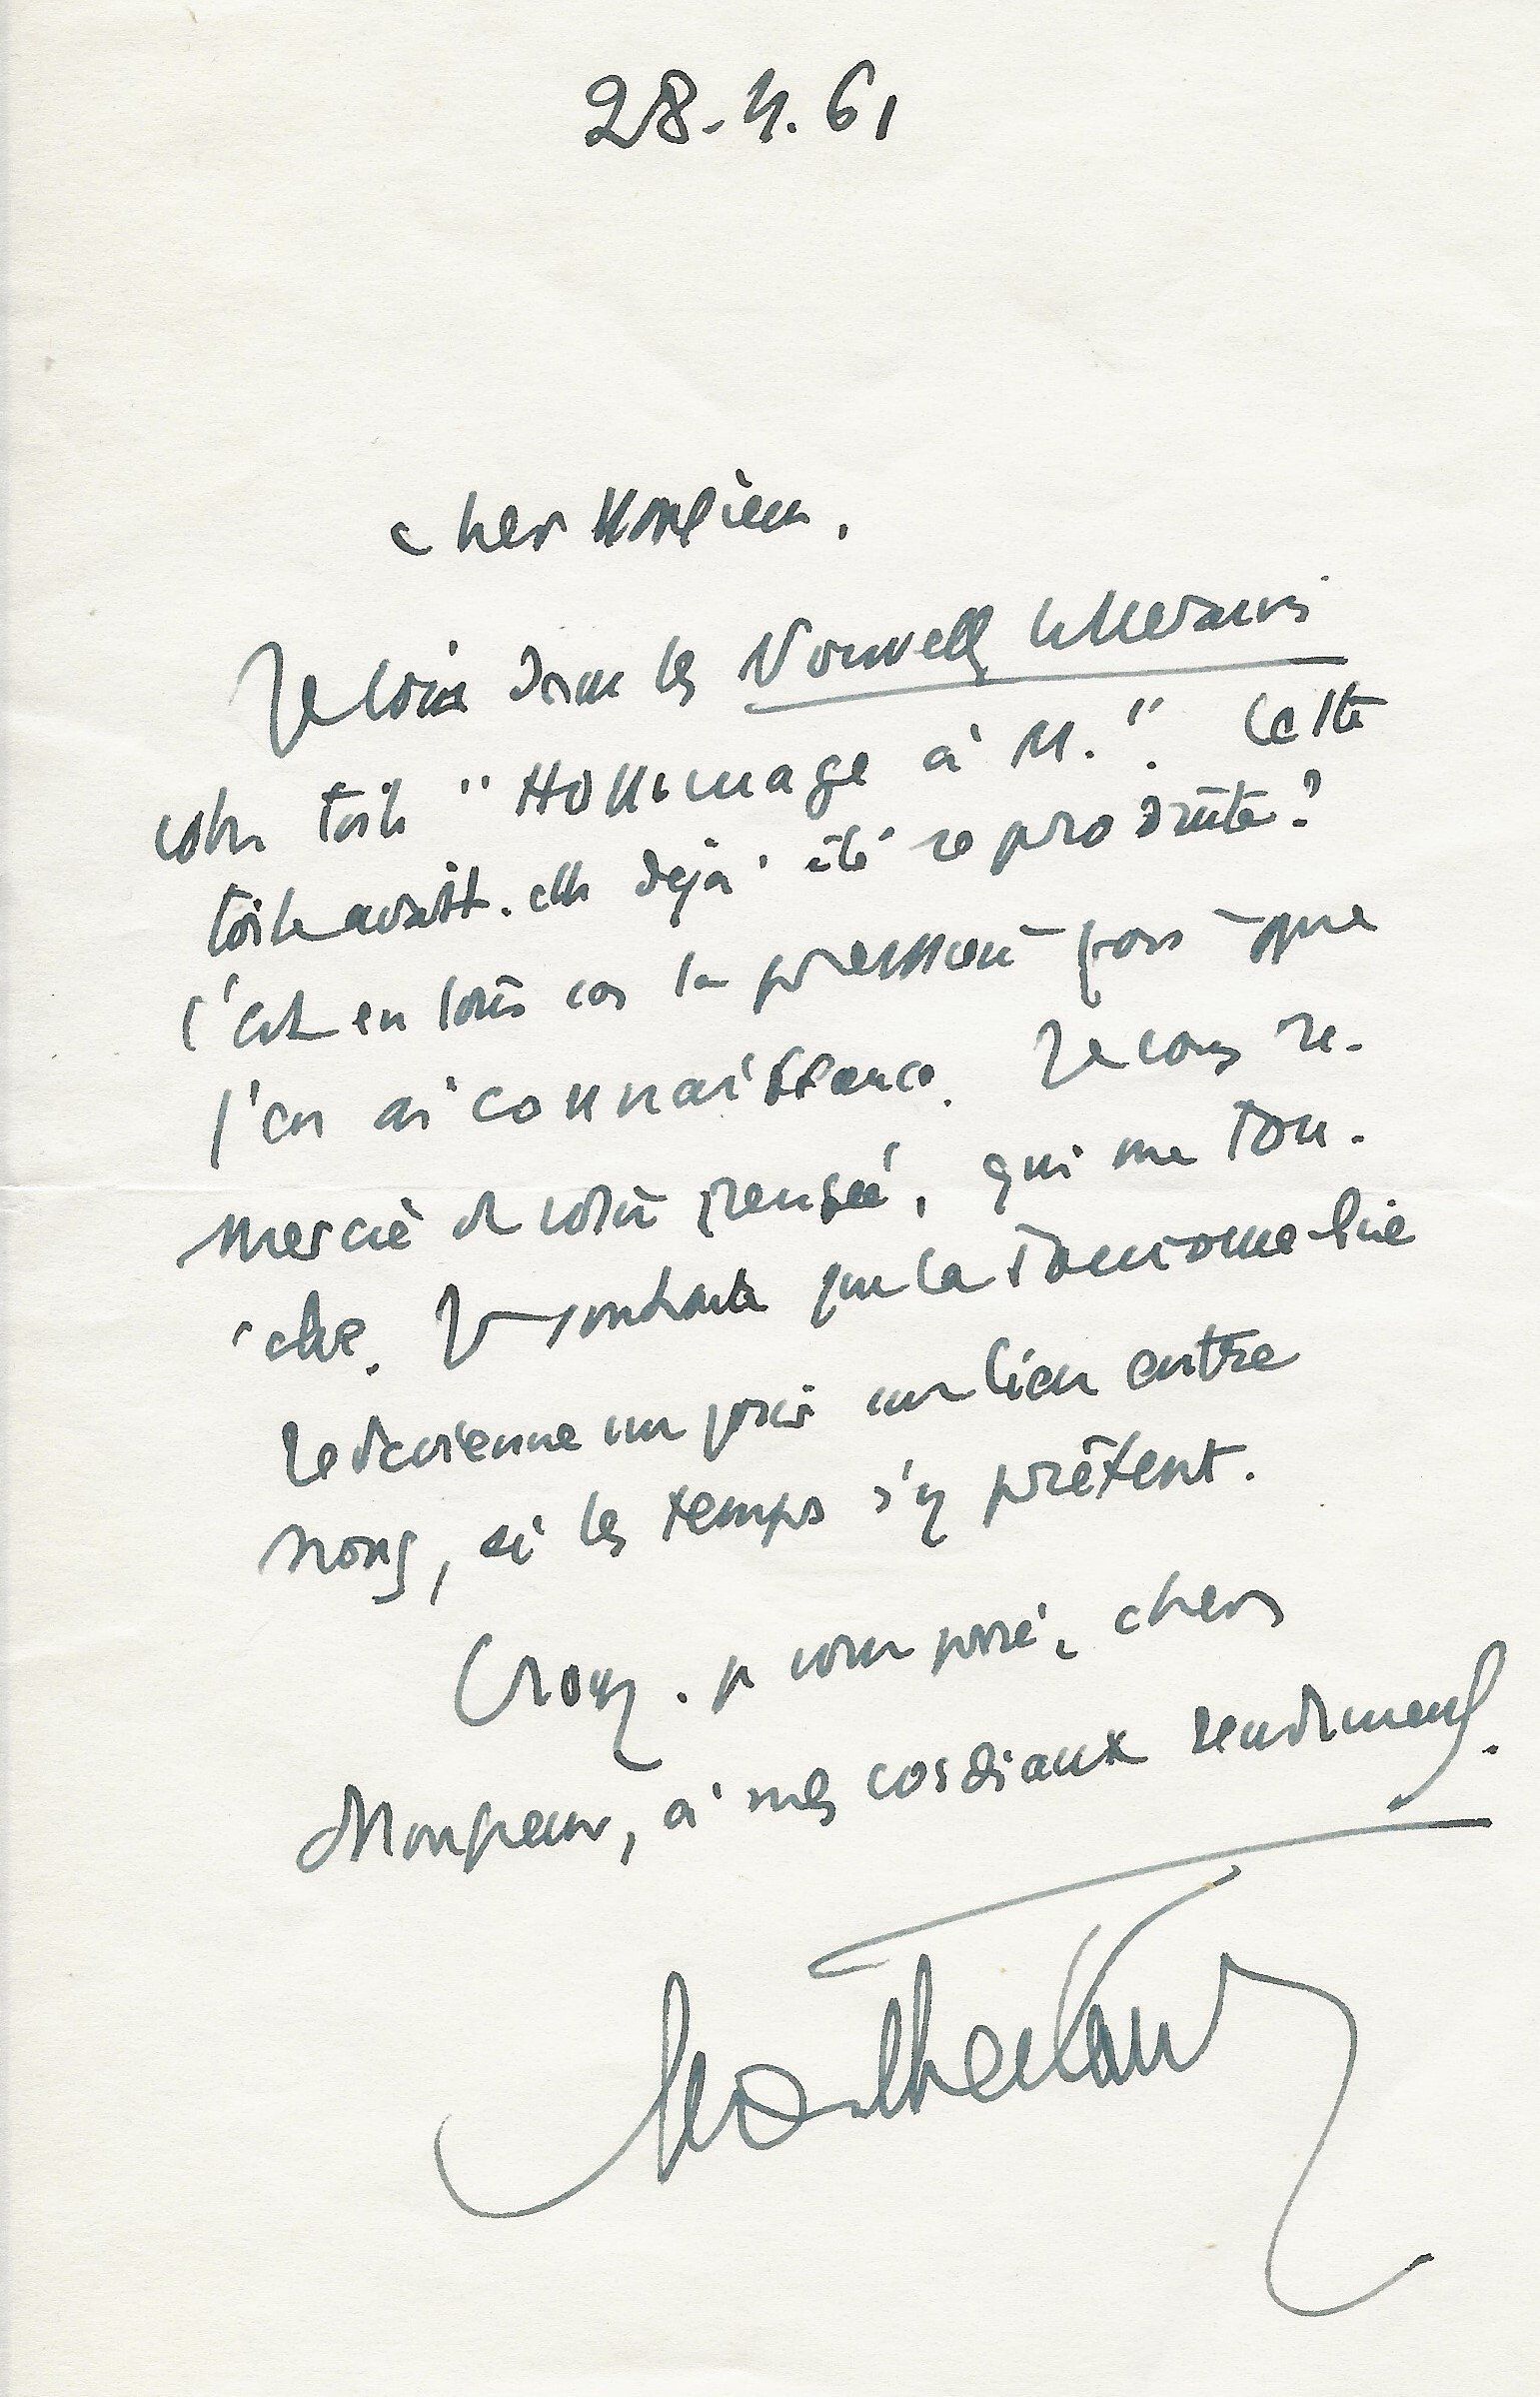 28-4.61
Cher Monsieur,
Je vois dans les Nouvelles littéraires
votre toile "Hommage à M.". Cette
toile avait-elle déjà été reproduite?
C'est en tous cas la première fois que
j'en ai connaissance. Je vous re-
mercie de votre pensée, qui me tou-
che. Je souhaite que la tauromachie
redevienne un jour un lien entre
nous, si les temps s'y prêtent.
Croyez-je vous prie, cher
Monsieur, à mes cordiaux sentiments.
Montherlant